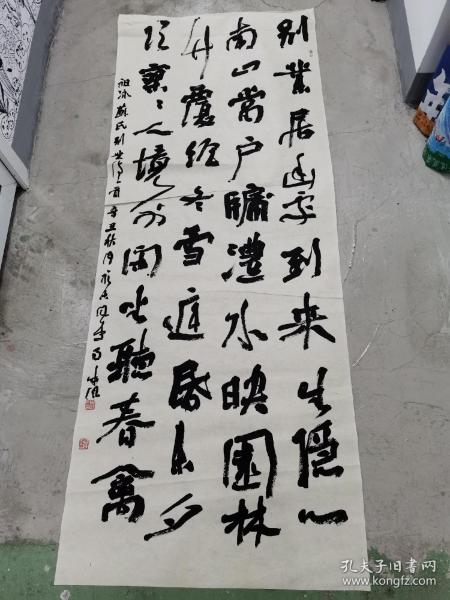 别業居幽处到来生隐心
南山當户牖澧水映園林
竹覆经冬雪庭昏未夕
阴寥々人境外闲坐聽春禽
祖咏蘇氏别业诗一首辛丑秋月
孔夫子旧书网
www.kongfz.com